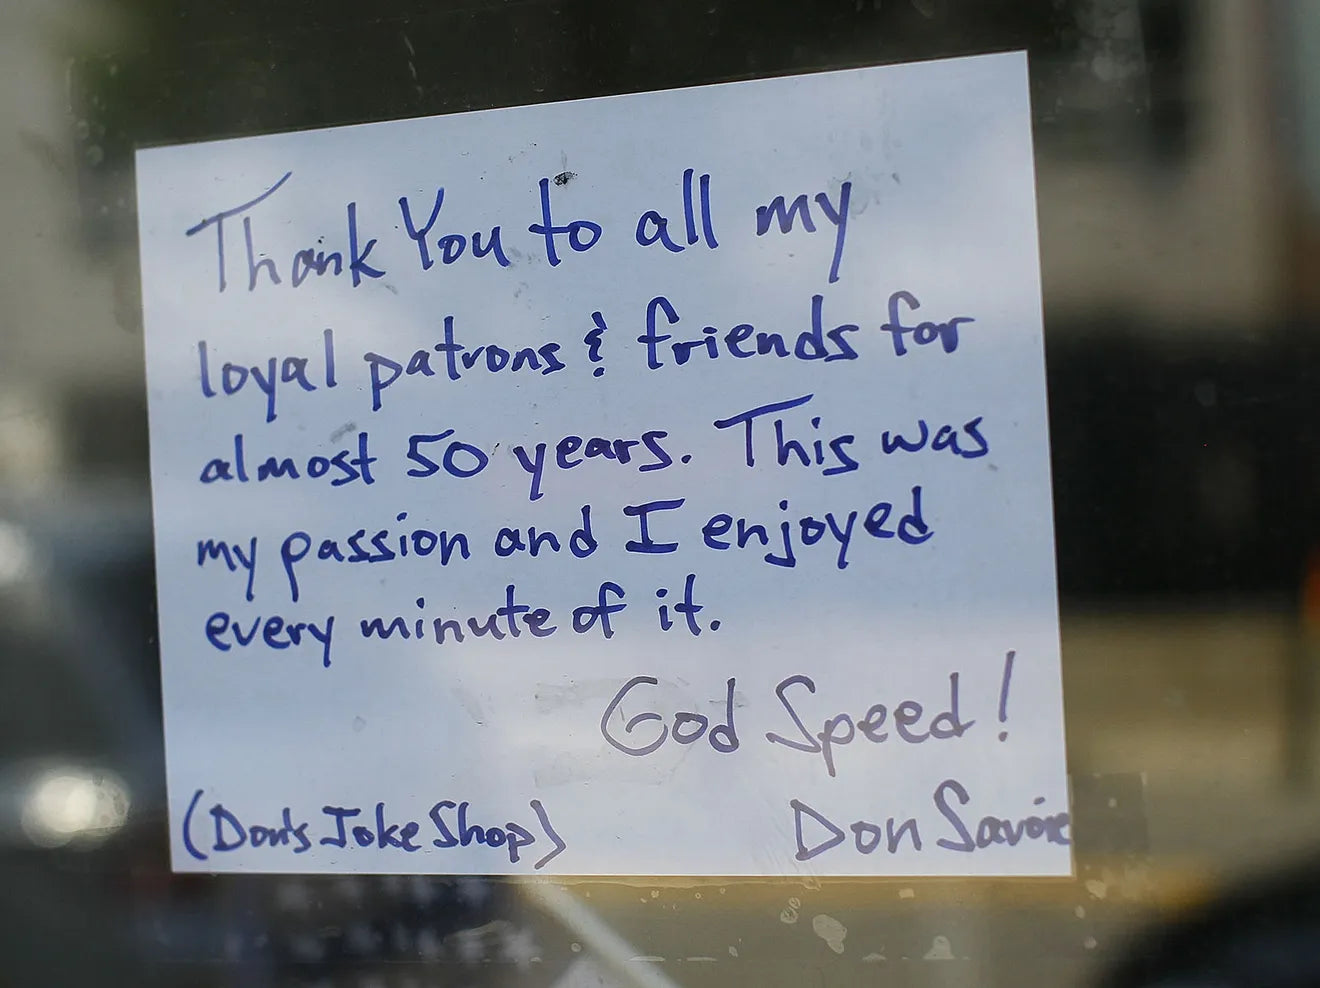 Thank You to all my
loyal patrons & friends for
almost 50 years. This was
my passion and I enjoyed
every minute of it.
God Speed!
(Don's Joke Shop) Don Savoie